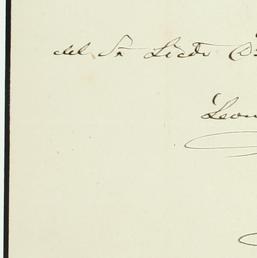 del Sr Licdo
Leon